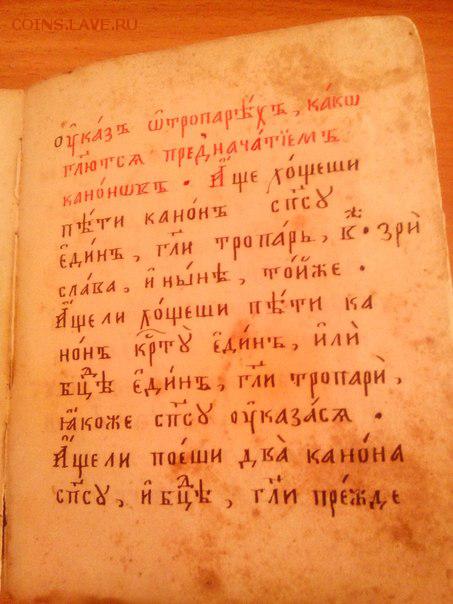 COINS.LAVE.RU
ᲂу҆ка́зъ ѿтропарѣ́хъ, ка́кѡ
гл҃ются предначина́тїемъ
кано́нѡвъ . А҆́ще хо́щеши
пѣ́ти кано́нъ сп҃сꙋ
є҆ди́нъ, гл҃и тропа́рь, в҃.жды̀
сла́ва, и҆ ны́нѣ, то́йже .
А҆́щели хо́щеши пѣ́ти ка
но́нъ крⷭ҇тꙋ̀ є҆ди́нъ, и҆лѝ
бцⷣѣ є҆ди́нъ, гл҃и тропарѝ,
ꙗ҆́коже сп҃сꙋ ᲂу҆каза́ся .
А҆́щели пое́ши два̀ кано́на
сп҃сꙋ, и҆ бцⷣѣ, гл҃и пре́жде